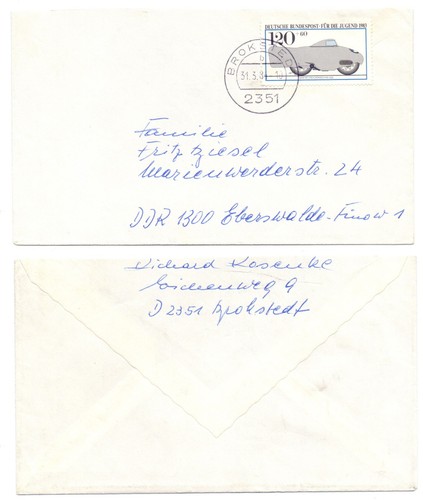 DEUTSCHE BUNDESPOST · FÜR DIE JUGEND 1983
120 +60
BROKSTEDT
b
31.3.8
2351
Familie
Fritz Ziesel
Marienwerderstr. 24
DDR 1300 Eberswalde-Finow 1
Richard Kosenke
9
D 2351 Brokstedt